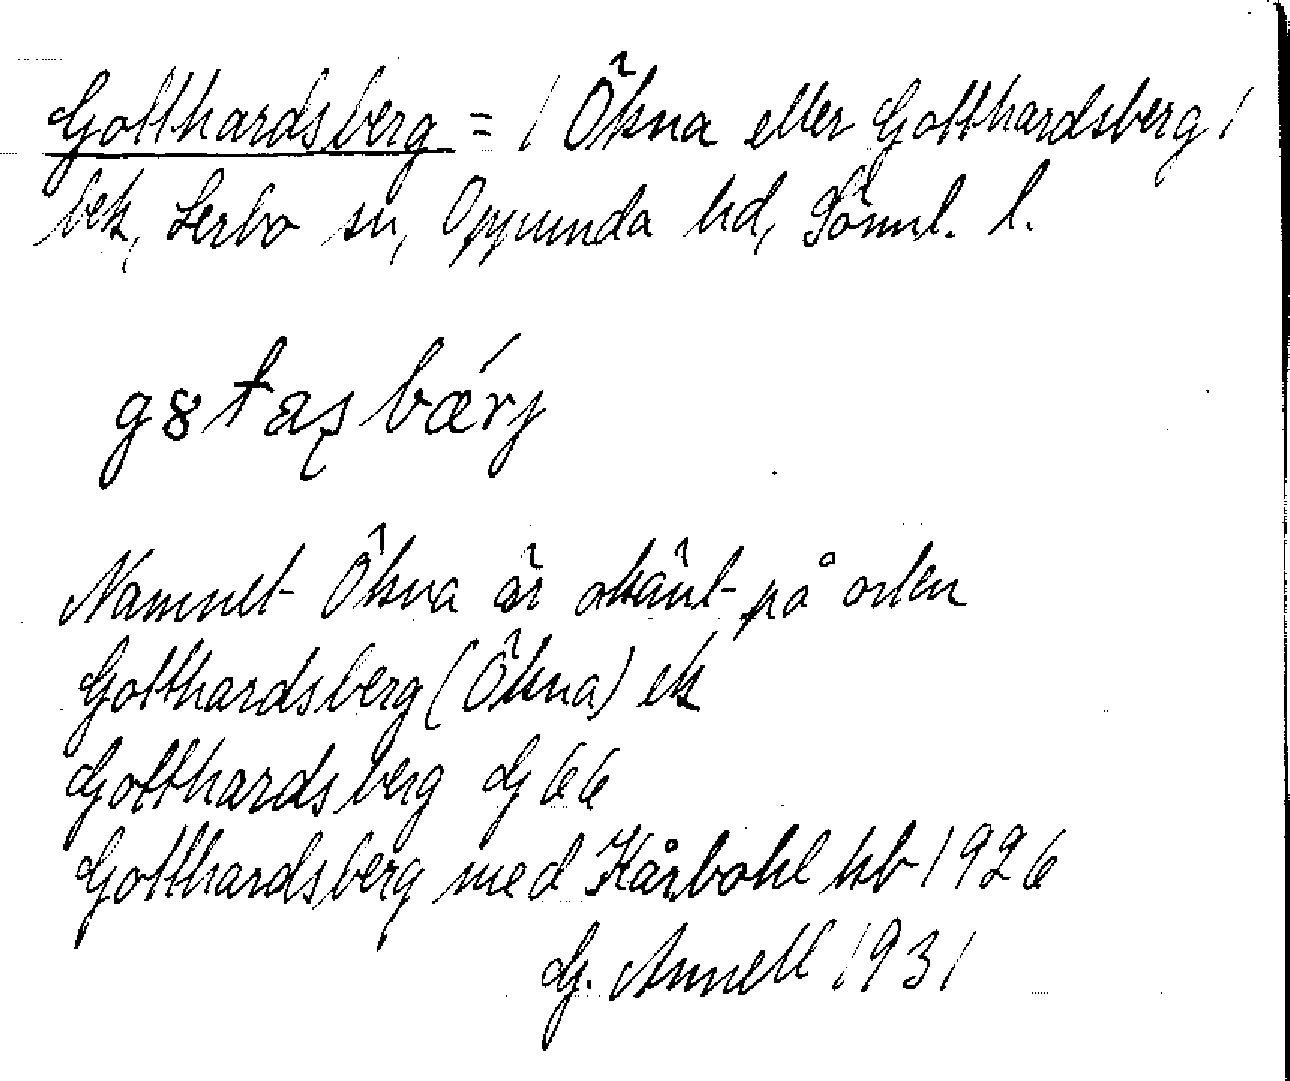 Gotthardsberg = / Ökna eller Gotthardsberg /
bek, Lerbo sn, Oppunda hd, Söml. l.
g8tasbǽrj
Namnet Ökna är okänt på orten
Gotthardsberg (Ökna) ek
Gotthardsberg G 66
Gotthardsberg med Kårbohl hb 1926
G. Annell 1931